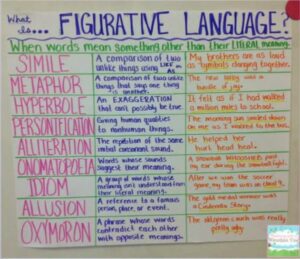 What is... FIGURATIVE LANGUAGE?
When words mean something other than their LITERAL meaning.
SIMILE
A comparison of two
unlike things using LIKE or
AS
My brothers are as loud
as cymbals clanging together.
METAPHOR
A comparison of two unlike
things that says one thing
is another.
The new baby was a
bundle of joy.
HYPERBOLE
An EXAGGERATION
that can't possibly be true
It felt as if I had walked
a million miles to school.
PERSONIFICATION
Giving human qualities
to nonhuman things.
The morning sun smiled down
on me as I walked to the bus.
ALLITERATION
The repetition of the same
initial consonant sound.
He helped her
hurt head heal.
ONOMATOPOEIA
Words whose sounds
suggest their meaning.
A snowball whooshed past
my ear during the snowball fight.
IDIOM
A group of words whose
meaning isn't understood from
their literal meaning.
After we won the soccer
game, my team was on cloud 9.
ALLUSION
A reference to a famous
person, place, or event.
The gold medal winner was
a Cinderella Story.
OXYMORON
A phrase whose words
contradict each other
with opposite meanings.
was really
pretty ugly.